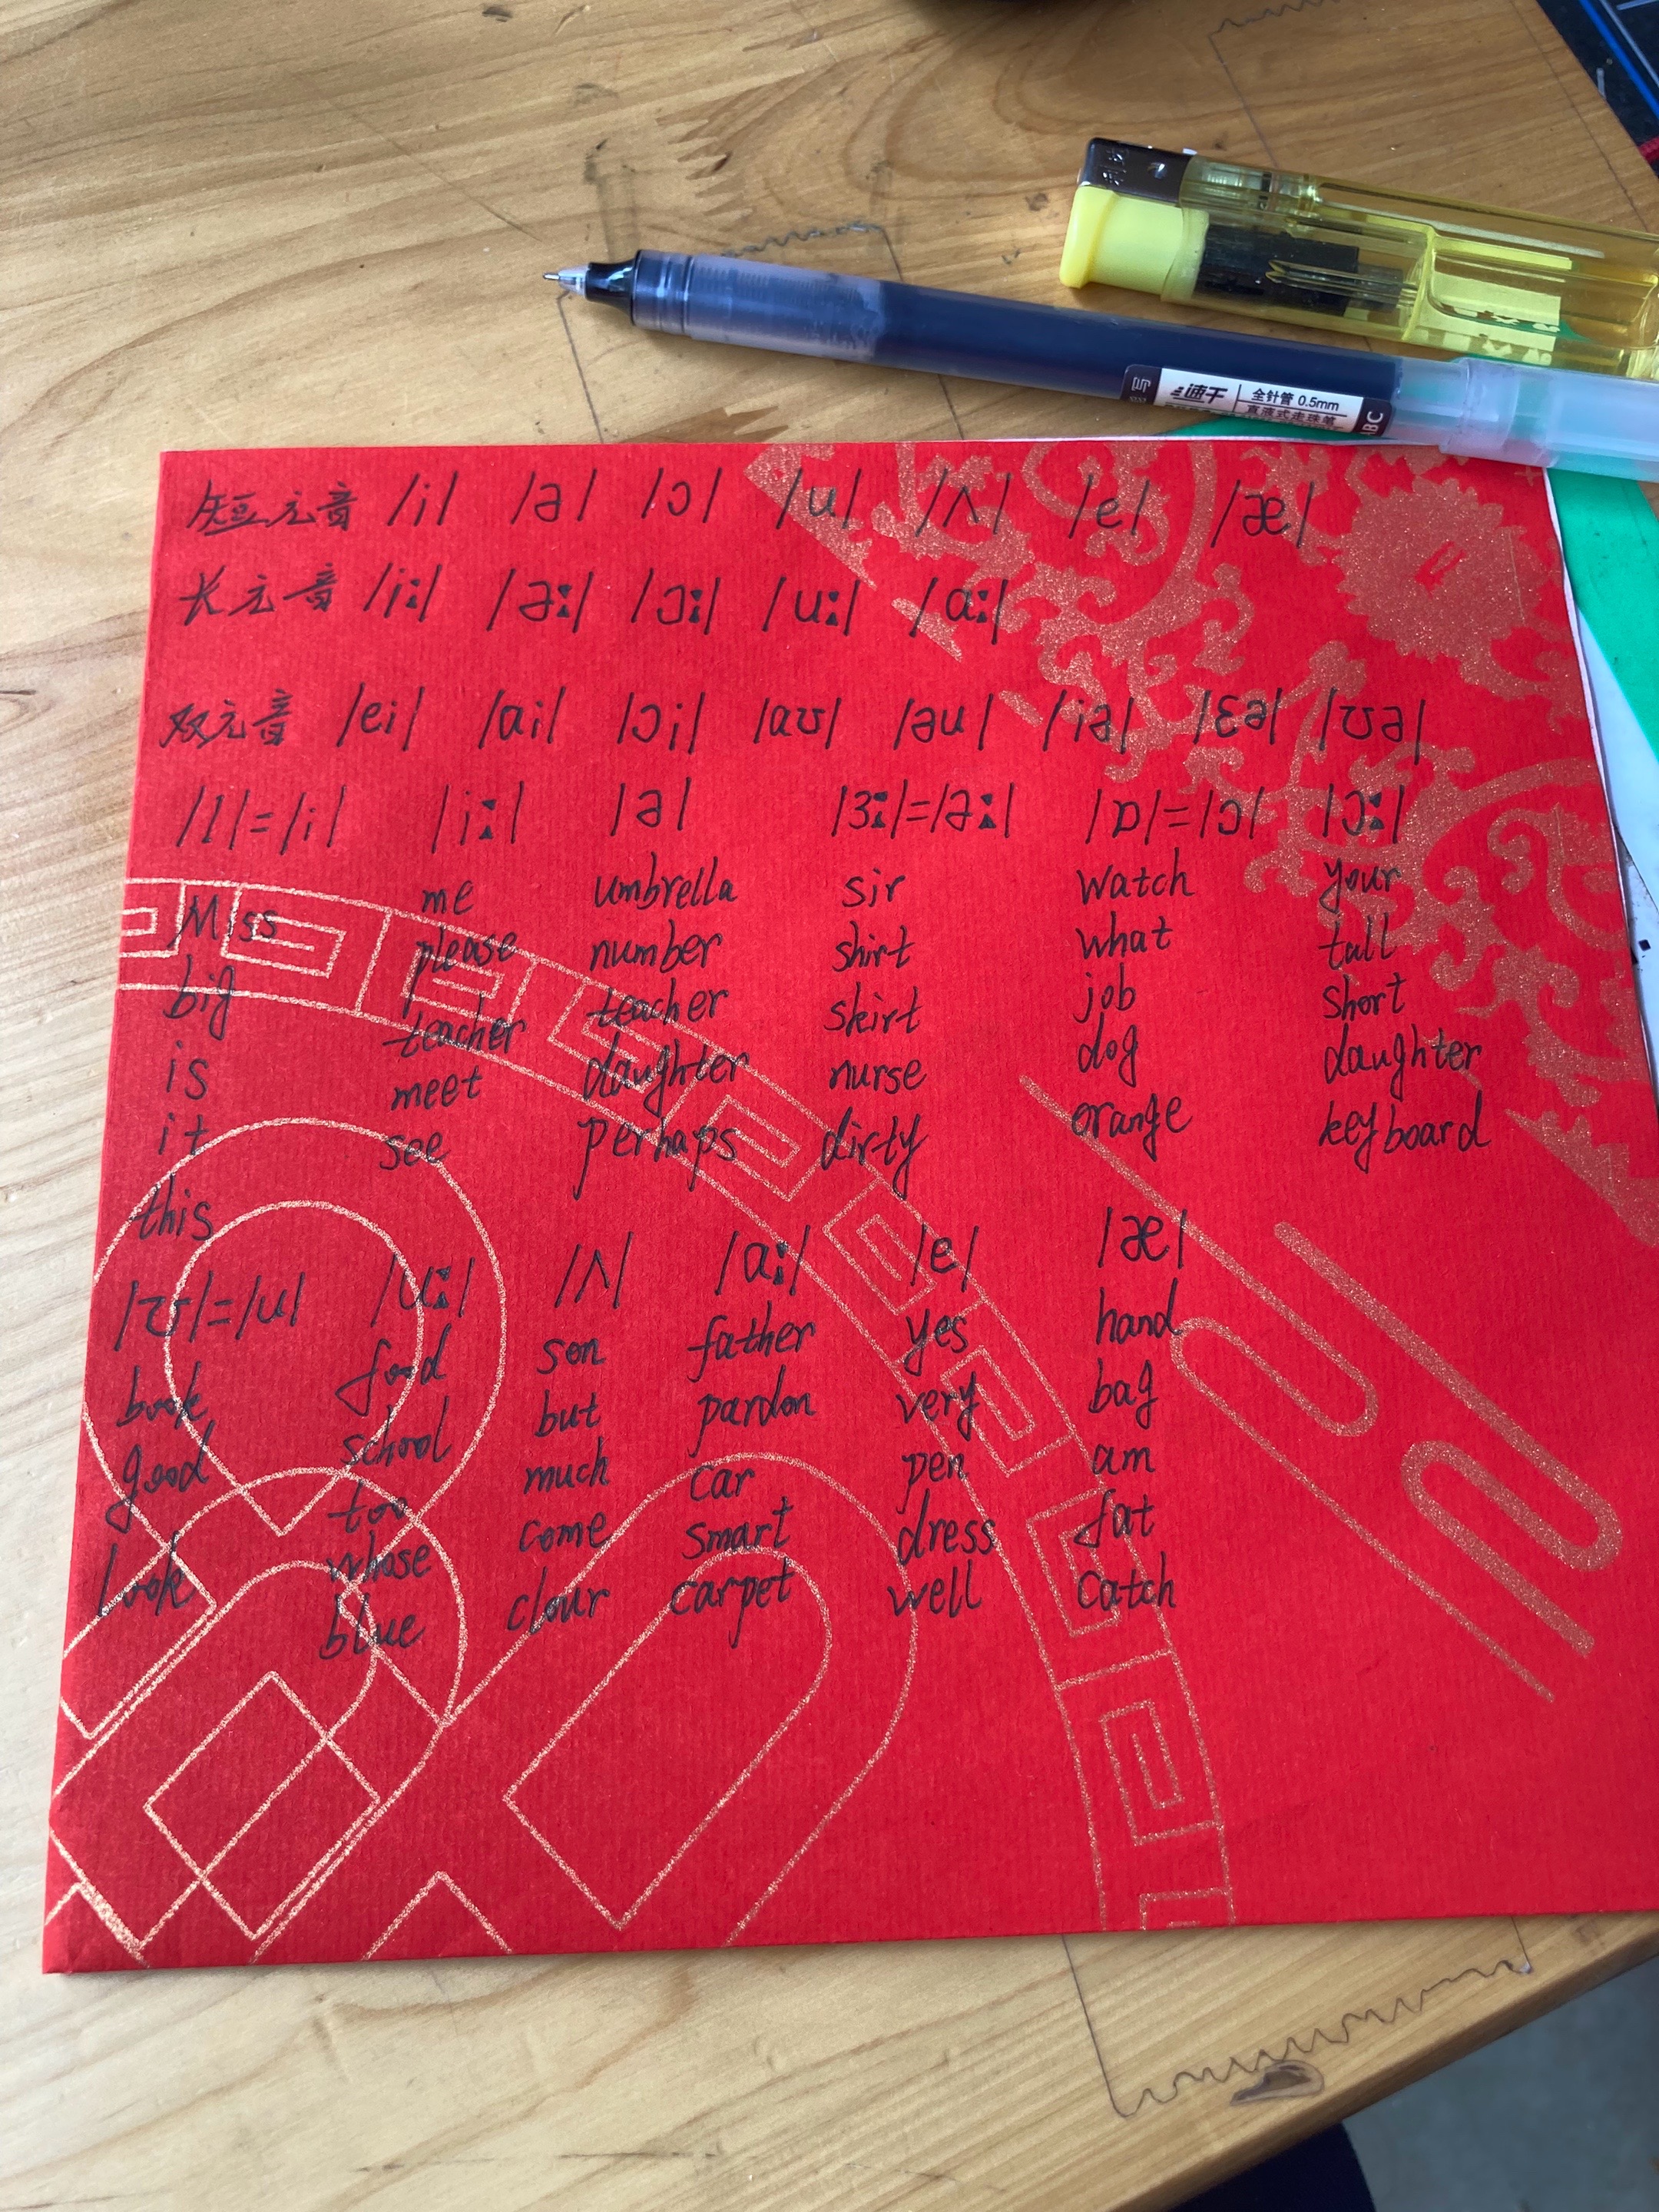 速干 全针管 0.5mm
直液式走珠笔
ABC
短元音 /i/ /ə/ /ɔ/ /u/ /ʌ/ /e/ /æ/
长元音 /i:/ /ə:/ /ɔ:/ /u:/ /ɑ:/
双元音 /ei/ /ai/ /ɔi/ /aʊ/ /əu/ /iə/ /ɛə/ /ʊə/
/ɪ/=/i/ /i:/ /ə/ /ɜ:/=/ə:/ /ɒ/=/ɔ/ /ɔ:/
Miss me umbrella sir watch your
big please number shirt what tall
is teacher teacher skirt job short
it meet daughter nurse dog daughter
this see perhaps dirty orange keyboard
/ʊ/=/u/ /u:/ /ʌ/ /ɑ:/ /e/ /æ/
book food son father yes hand
good school but pardon very bag
look too much car pen am
whose come smart dress fat
blue clour carpet well catch